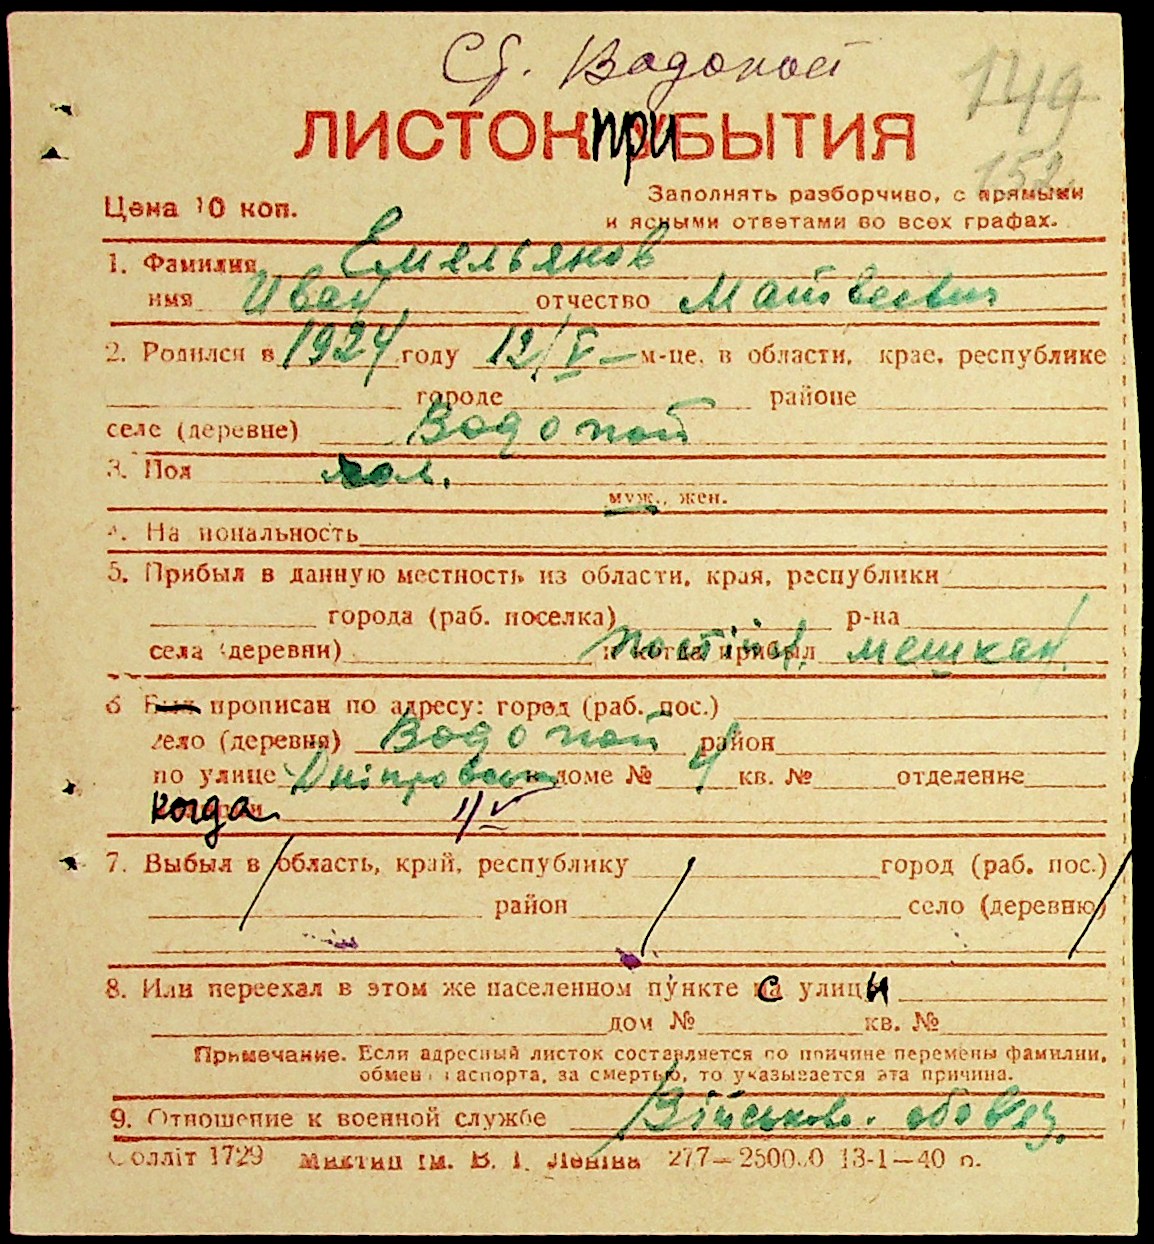 Сд. Водопой
149
ЛИСТОК ПРИБЫТИЯ
152
Цена 10 коп.
Заполнять разборчиво, с прямыми
и ясными ответами во всех графах.
1. Фамилия Емельянов
имя Иван отчество Матвеевич
2. Родился в 1924 году 12/V – м-це, в области, крае, республике
городе районе
селе (деревне) Водопой
3. Пол чол.
муж., жен.
4. На иональность
5. Прибыл в данную местность из области, края, республики
города (раб. поселка) р-на
села (деревни) и когда прибыл постійн. мешкан.
6 Был прописан по адресу: город (раб. пос.)
село (деревня) Водопой район
по улице Дніпровськ в доме № 4 кв. № отделение
когда 1/V
7. Выбыл в область, край, республику город (раб. пос.)
район село (деревню)
8. Или переехал в этом же населенном пункте с улицы
дом № кв. №
Примечание. Если адресный листок составляется по причине перемены фамилии,
обмен паспорта, за смертью, то указывается эта причина.
9. Отношение к военной службе Військов. обовяз.
Облліт 1729 Миктип ім. В. І. Леніна 277—2500.0 13-1—40 р.